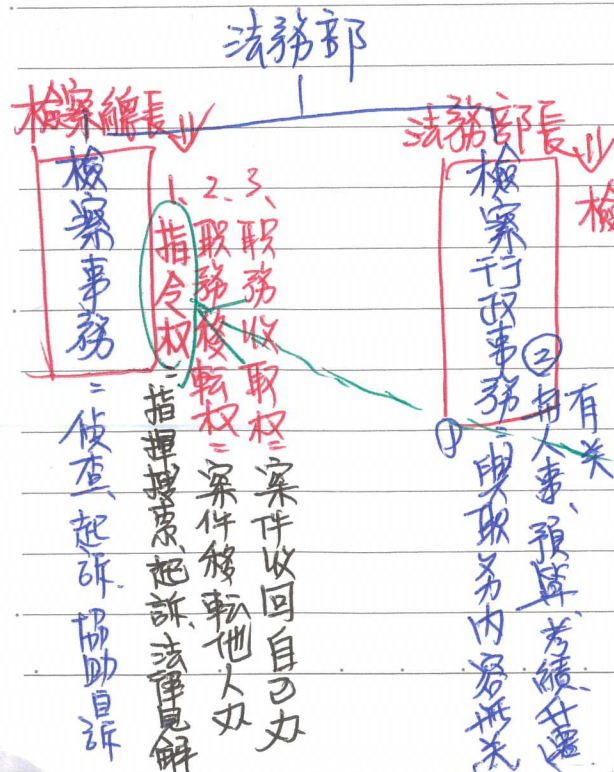 法務部
檢察總長
檢察事務=偵查、起訴、協助自訴
1、指令权=指揮搜索、起訴、法律見解
2、职務移転权=案件移転他人办
3、职務收取权=案件收回自己办
法務部長
檢察行政事務=
①與职务內容無关
②有关人事、預算、考績、升遷
檢